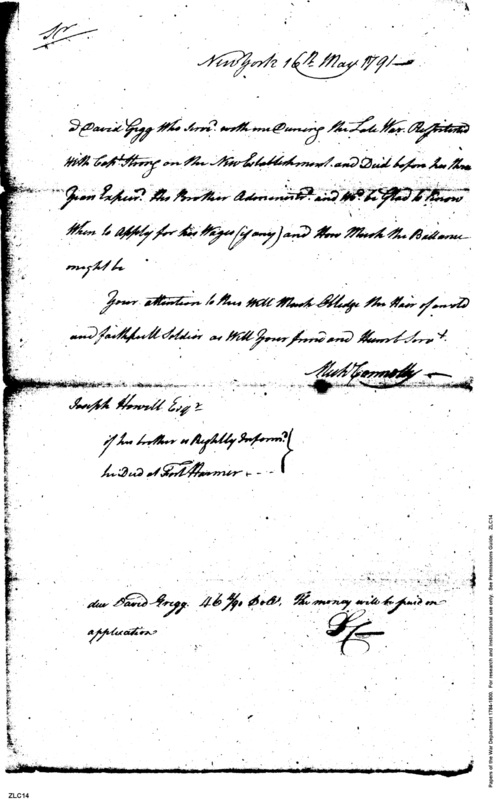 Sir
New York 16th May 1791
a David Gregg Who Servd. with me During the Late War. Register'd
With Captn Strong on the New Establishment. and Died before his three
Years Expierd. His Brother Administerd. and wd. be Glad to Know
When to Apply for his Wages (if any) and How Much the Ballance
might be
Your attention to this Will Much Obledge the Hair of an old
and faithfull Soldier as Will Your friend and Humbl Servt.
Michl Connolly
Joseph Howell Esqr
if his brother is Rightly Informd.
he Died at Fort Harmer
due David Gregg. 46 /90 Dolls. The money will be paid on
application
ZLC14
Papers of the War Department 1784-1800. For research and instructional use only. See Permissions Guide. ZLC14